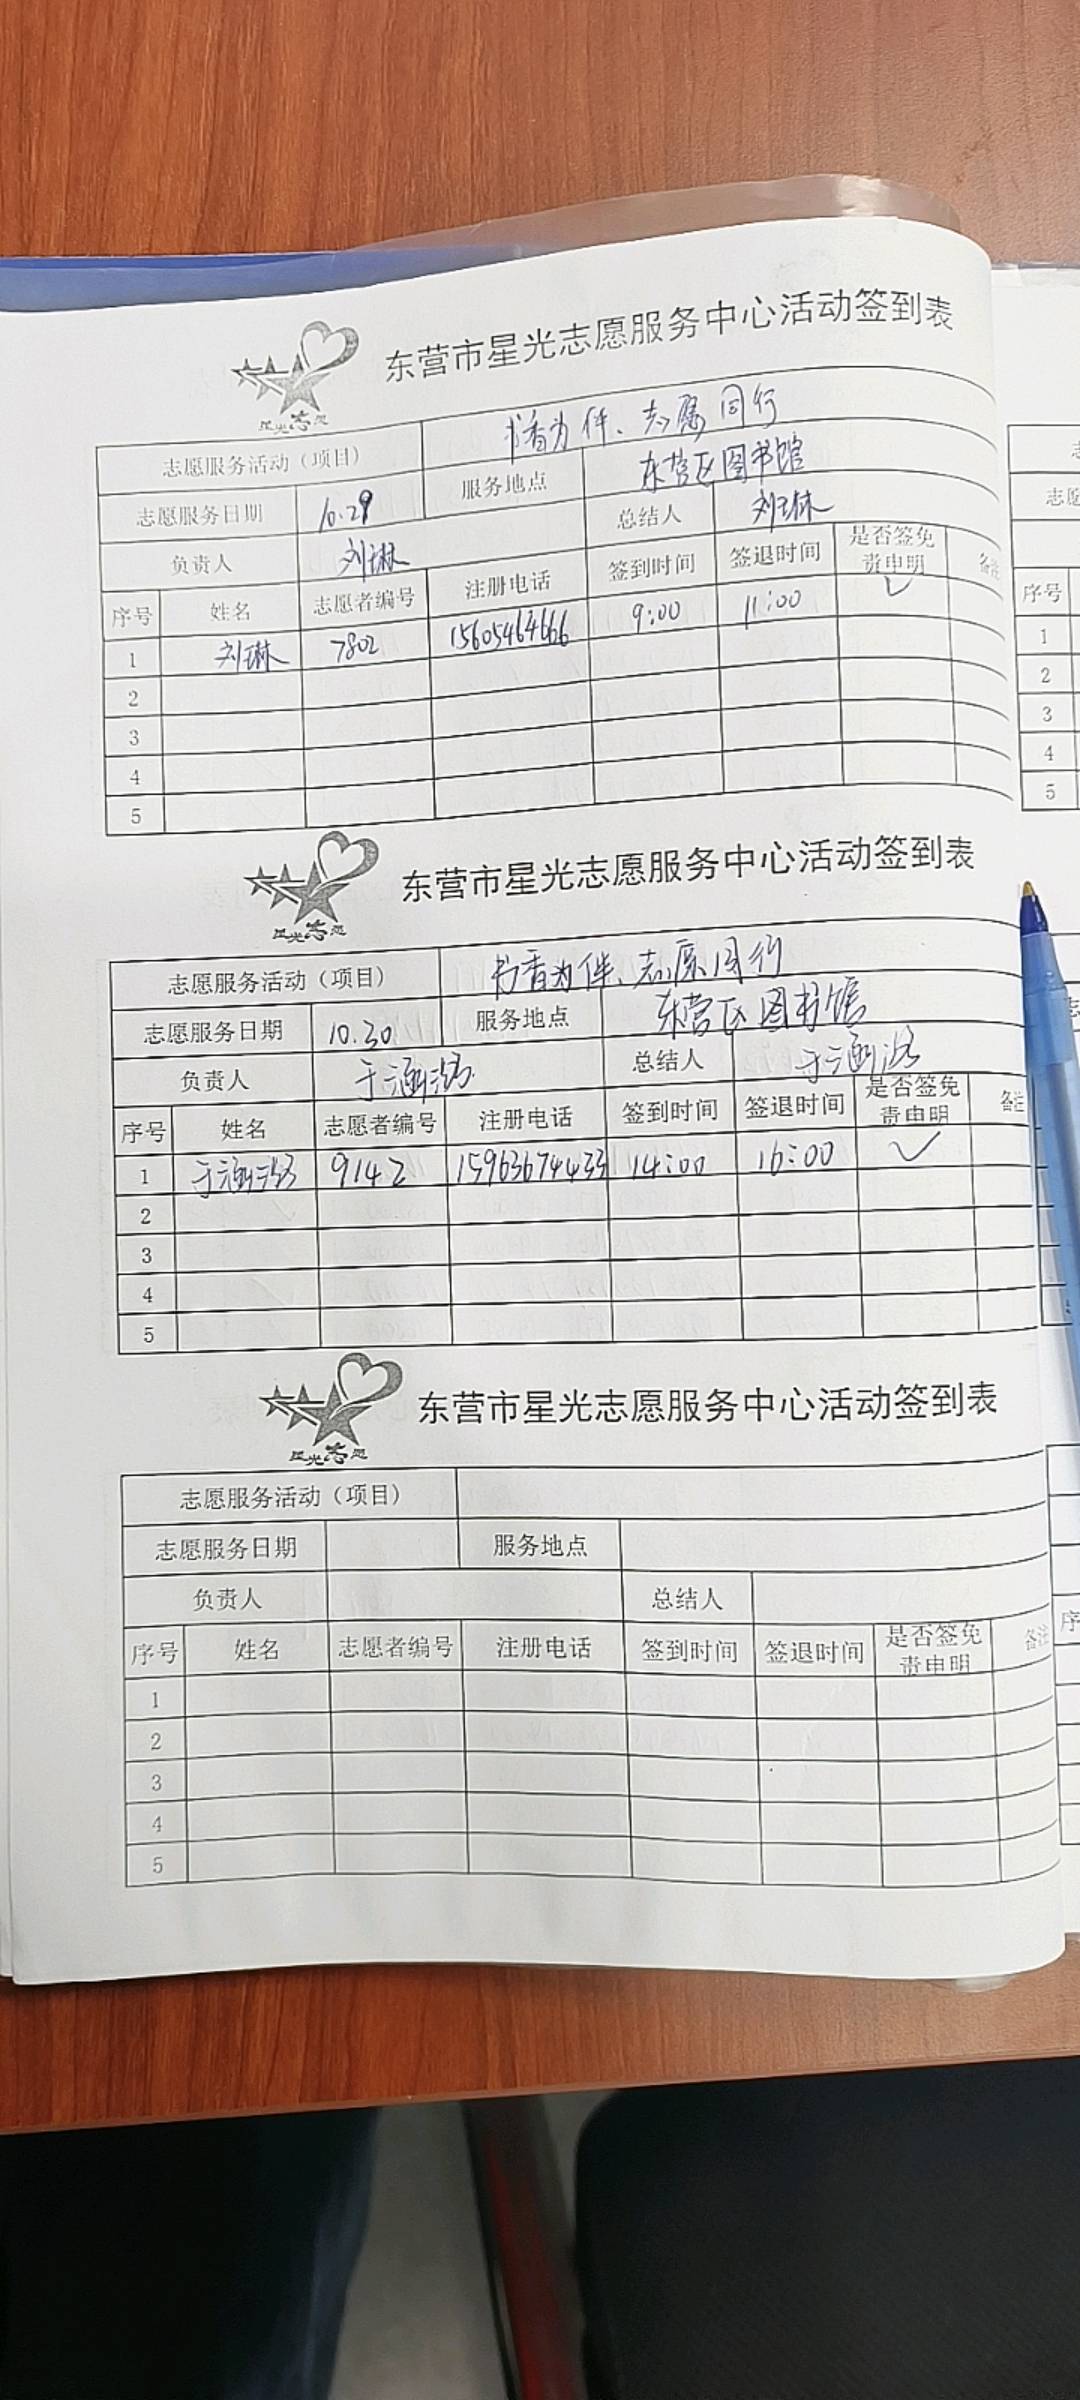 星光志愿
东营市星光志愿服务中心活动签到表
志愿服务活动（项目） 书香为伴、志愿同行
志愿服务日期 10.29 服务地点 东营区图书馆
负责人 刘琳 总结人 刘琳
序号 姓名 志愿者编号 注册电话 签到时间 签退时间 是否签免责申明 备注
1 刘琳 7802 15605464666 9:00 11:00 ✓
2
3
4
5
星光志愿
东营市星光志愿服务中心活动签到表
志愿服务活动（项目） 书香为伴、志愿同行
志愿服务日期 10.30 服务地点 东营区图书馆
负责人 于涵 总结人 于涵
序号 姓名 志愿者编号 注册电话 签到时间 签退时间 是否签免责申明 备注
1 于涵 9142 15963674433 14:00 16:00 ✓
2
3
4
5
星光志愿
东营市星光志愿服务中心活动签到表
志愿服务活动（项目）
志愿服务日期 服务地点
负责人 总结人
序号 姓名 志愿者编号 注册电话 签到时间 签退时间 是否签免责申明 备注
1
2
3
4
5
志愿
序号
1
2
3
4
5